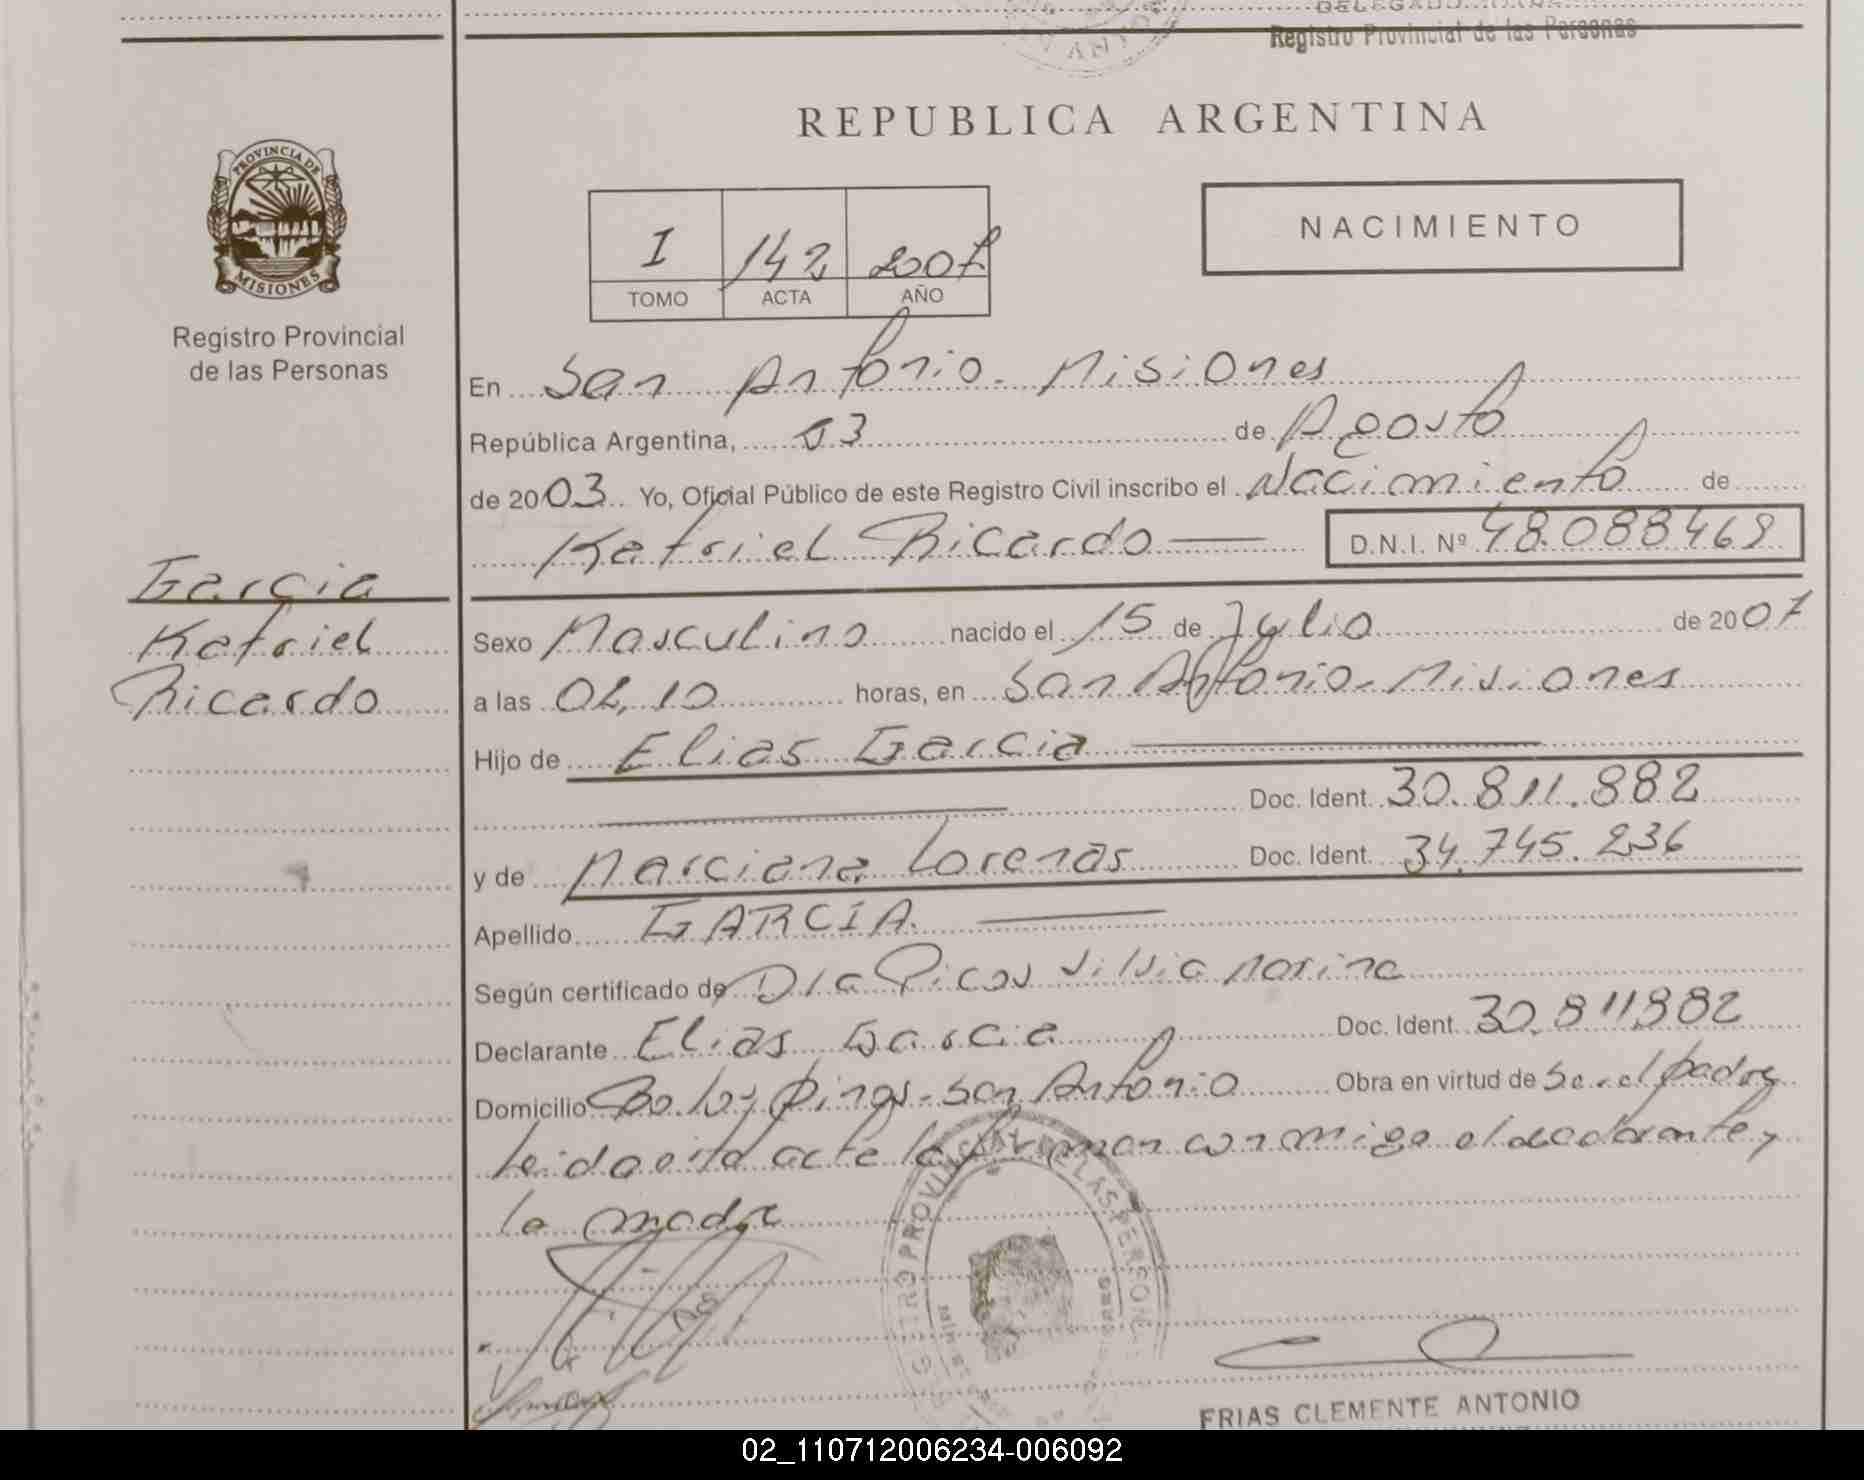 DELEGADO
Registro Provincial de las Personas
REPUBLICA ARGENTINA
PROVINCIA DE
MISIONES
Registro Provincial
de las Personas
NACIMIENTO
I 142 2007
TOMO ACTA AÑO
En San Antonio. Misiones
República Argentina, 03 de Agosto
de 2003 Yo, Oficial Público de este Registro Civil inscribo el Nacimiento de
Katriel Ricardo D.N.I. Nº 48.088469
Garcia
Katriel
Ricardo
Sexo Masculino nacido el 15 de Julio de 2007
a las 02,10 horas, en San Antonio. Misiones
Hijo de Elias Garcia
Doc. Ident. 30.811.882
y de Marciana Lorenas Doc. Ident. 34.745.236
Apellido GARCIA.
Según certificado de Dra Picos Silvia Marina
Declarante Elias Garcia Doc. Ident. 30.811882
Domicilio Bo. los pinos - San Antonio Obra en virtud de Ser el padre
Leida esta acta la firman conmigo el declarante y
la madre
REGISTRO PROVINCIAL DE LAS PERSONAS
FRIAS CLEMENTE ANTONIO
02_110712006234-006092